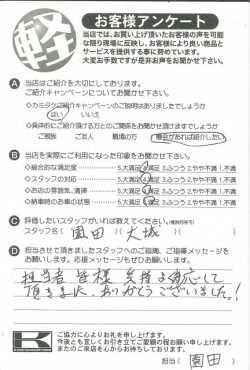 軽
お客様アンケート
当店では、お買い上げ頂いたお客様の声を可能
な限り現場に反映し、お客様により良い商品と
サービスを提供する事に努めています。
大変お手数ですが是非お声をお聞かせ下さい。
A 当店はご紹介を大切にしております。
ご紹介キャンペーンについてお聞かせ下さい。
◇カミタケご紹介キャンペーンのご説明はありましたでしょうか
はい いいえ
◇具体的にご紹介頂ける方とのご関係をお聞かせ頂けますでしょうか
ご親族 ご友人 職場の方 機会があれば紹介したい
B 当店を実際にご利用になった印象をお聞かせ下さい。
◇総合的な満足度 5大満足 4満足 3ふつう 2やや不満 1不満
◇スタッフの対応 5大満足 4満足 3ふつう 2やや不満 1不満
◇お店の雰囲気、清掃 5大満足 4満足 3ふつう 2やや不満 1不満
◇納車時のお車の状態 5大満足 4満足 3ふつう 2やや不満 1不満
C 評価したいスタッフがいれば教えてください。(複数回答可)
スタッフ名( 園田 大城 )
D 担当させて頂きましたスタッフへのご感想、ご指導メッセージを
お願いします。応援メッセージもぜひお願いします。
担当者 皆様 気持よく対応して
頂きました。ありがとうございました!
K
ご協力に心よりお礼を申し上げます。
今後とも宜しくお引き立てご愛顧の程お願い申し上げます。
またのご来店を心からお待ちしております。
担当( 園田 )